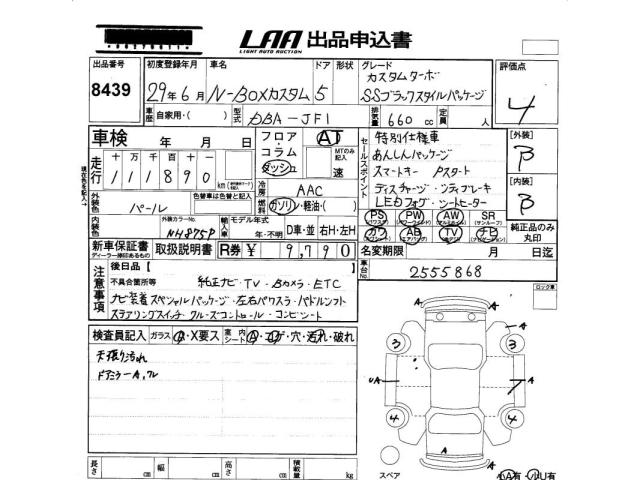 LAA 出品申込書
LIGHT AUTO AUCTION
出品番号
8439
初度登録年月
29年6月
車名
N-BOXカスタム
ドア
5
形状
グレード
カスタムターボ
SSブラックスタイルパッケージ
評価点
4
車歴 自家用・( )
型式
DBA-JF1
排気量 660 cc
定員 人
車検 年 月 日
走行
十万 万 千 百 十 一
111890 km
フロア・
コラム
ダッシュ
AT
MTのみ記入
速
セールスポイント
特別仕様車
あんしんパッケージ
スマートキー Pスタート
ディスチャージ・シティブレーキ
LEDフォグ・シートヒーター
[外装]
B
[内装]
B
外装色
パール
色替車は色替と記入
冷房 AAC
燃料 ガソリン・軽油・( )
PS PW AW SR
カワ AB TV ナビ
純正品のみ
丸印
内装色
外装カラーNo.
NH875P
輸入車
モデル年式
年・不明
D車・並 右H・左H
新車保証書
ディーラー捺印あるもの
取扱説明書
R券 ¥ 9,790
名変期限 月 日迄
車台No. 2555868
注意事項
後日品【
不具合箇所等
純正ナビ・TV・Bカメラ・ETC
ナビ装着スペシャルパッケージ・左右パワスラ・パドルシフト
ステアリングスイッチ・クルーズコントロール・コンビシート
ロック車
検査員記入 ガラス
X要ス
室内
シート
コゲ・穴・汚れ・破れ
天張り汚れ
ドアミラーA,ワレ
A
3 3
UA A
A
4 4
A
A
長さ cm 幅 cm 高さ cm 積載量 kg
スペア
小A有 小U有